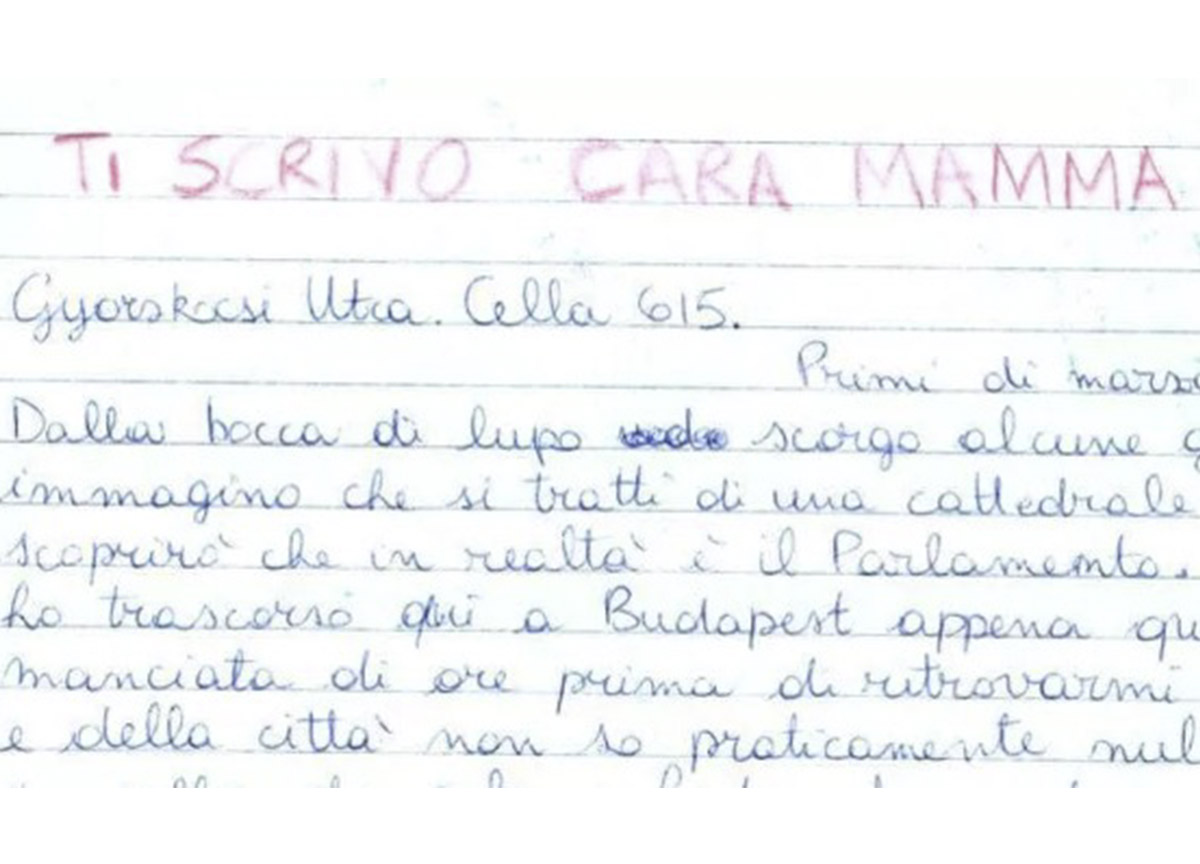 TI SCRIVO CARA MAMMA
Gyorskcsi Utca. Cella 615.
Primi di marzo
Dalla bocca di lupo scorgo alcune g
immagino che si tratti di una cattedrale
scoprirò che in realtà è il Parlamento.
ho trascorso qui a Budapest appena qu
manciata di ore prima di ritrovarmi
e della città non so praticamente nul